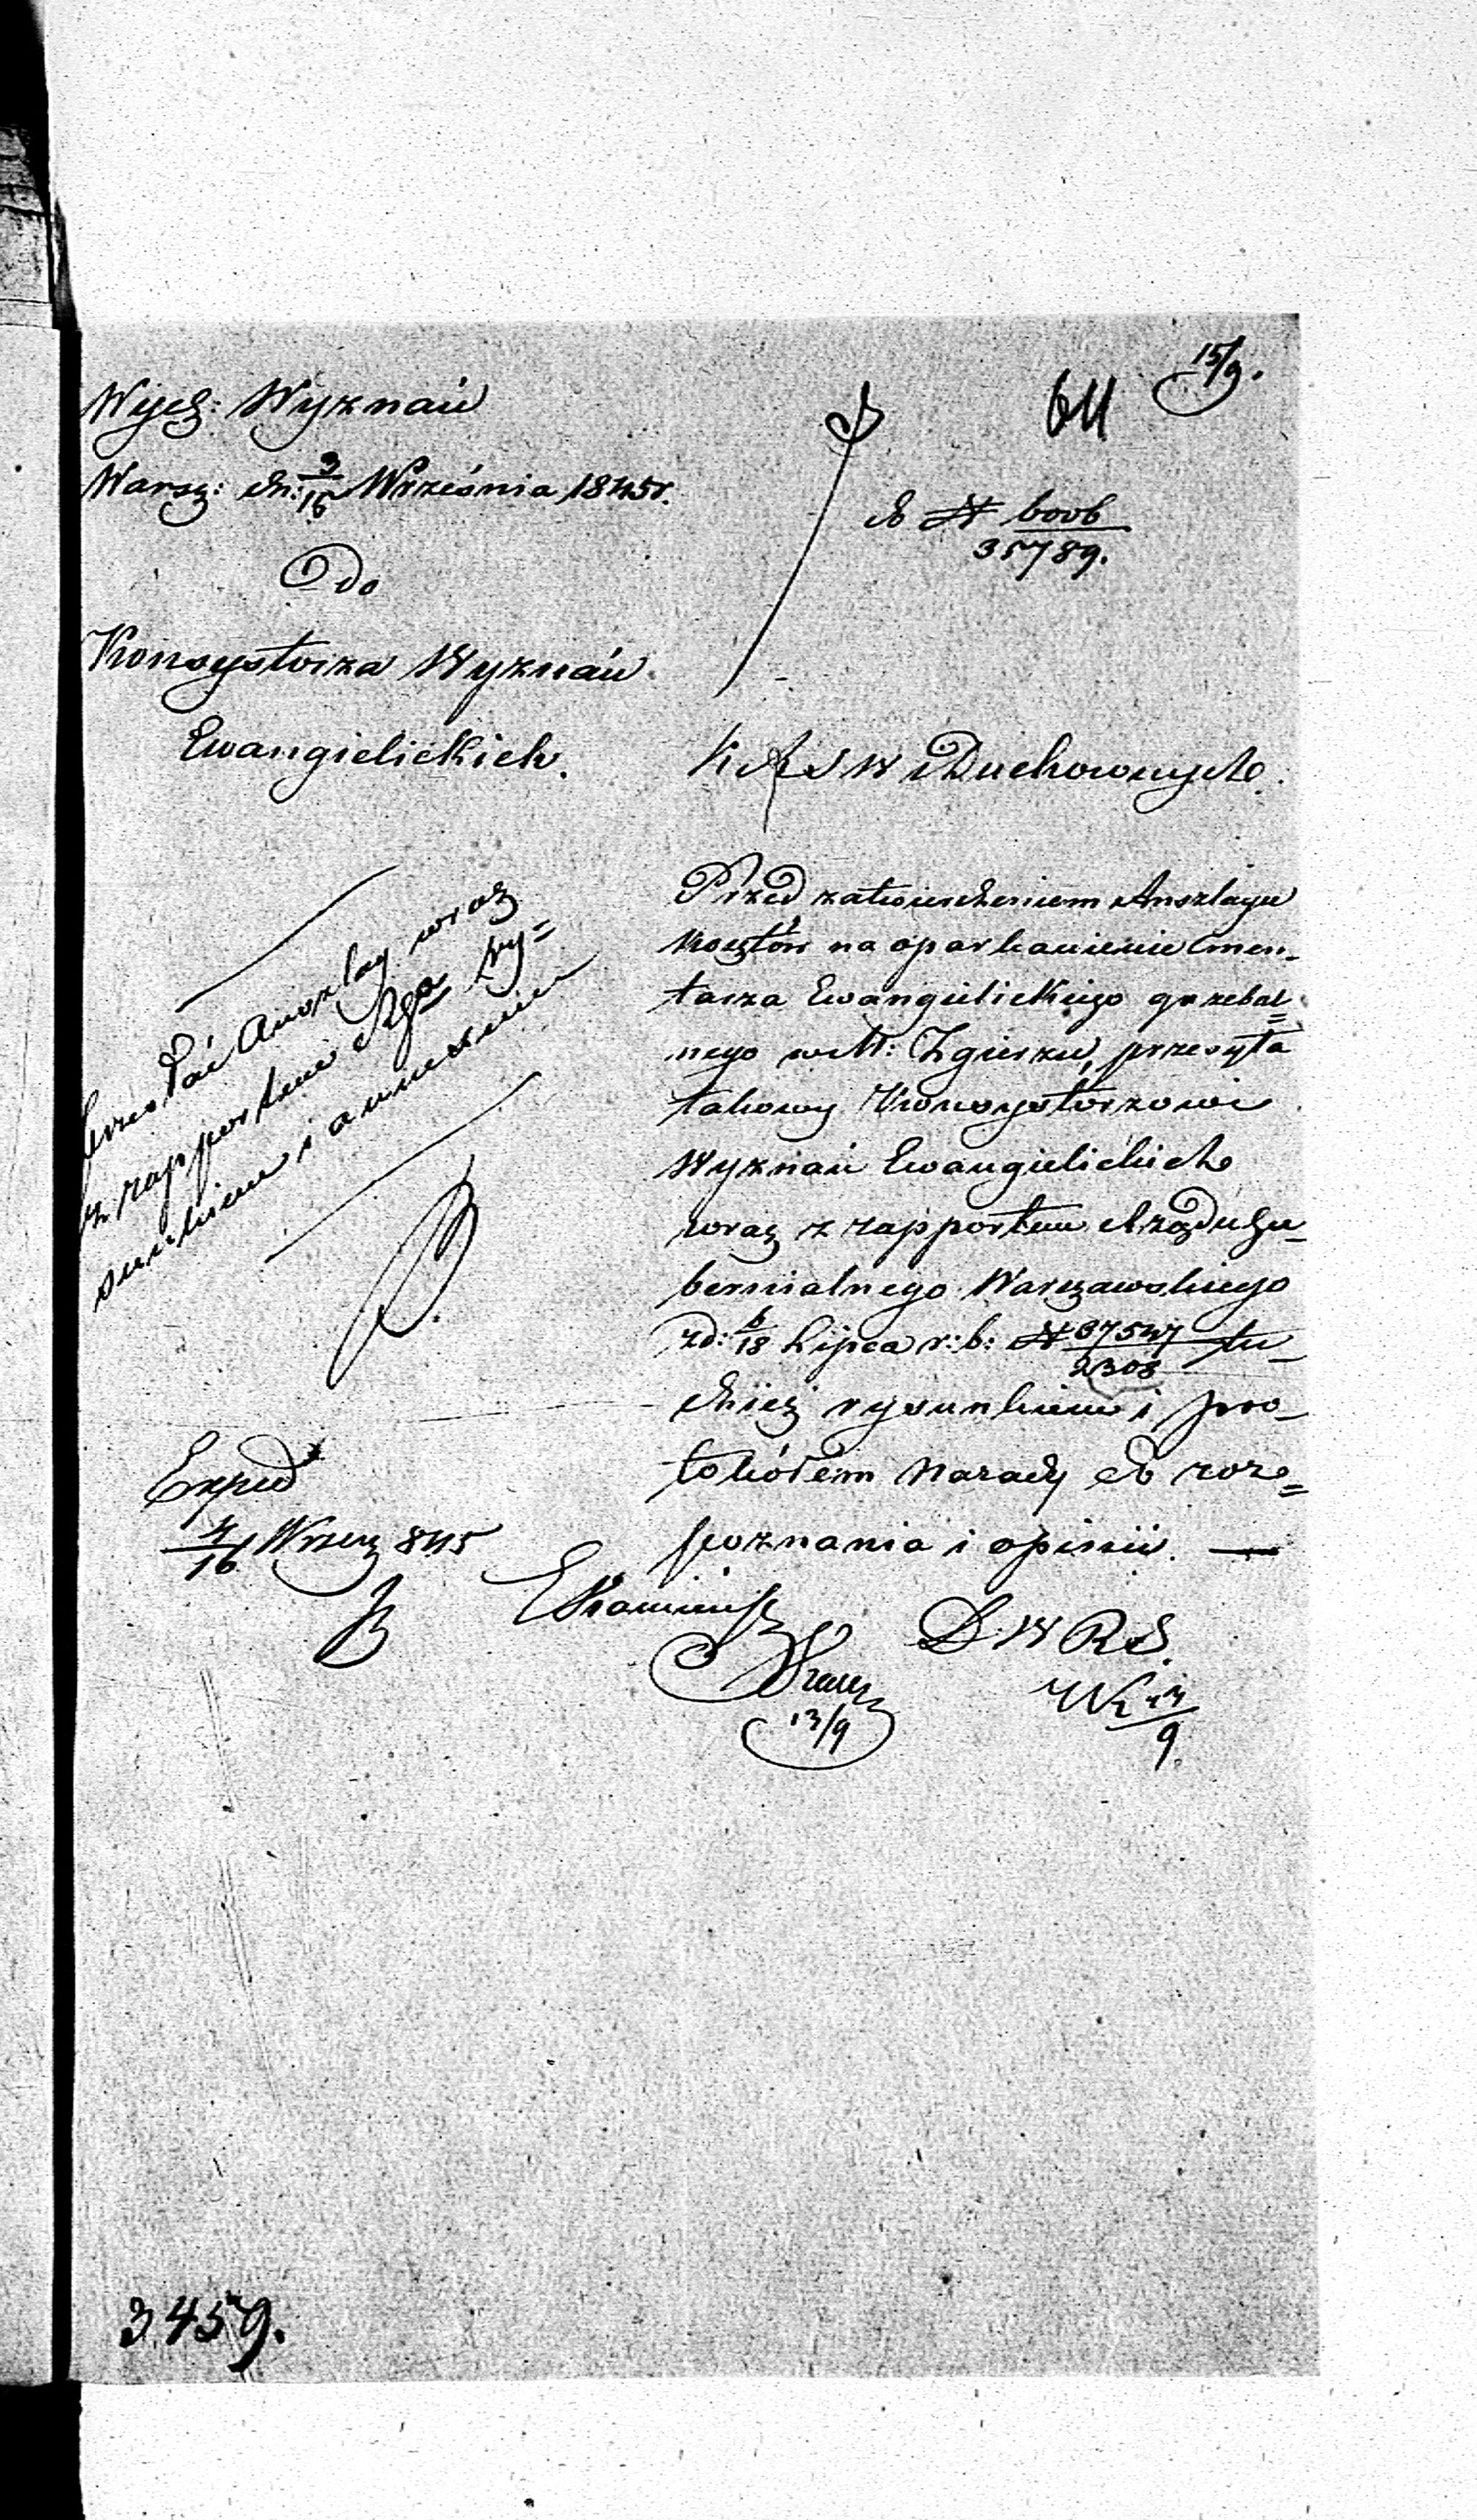 15/9.
611
Wydz: Wyznań
Warsz: dn: 3/15 Września 1845 r.
do № 6006/35789.
Do
Konsystorza Wyznań
Ewangielickich.
K R S W i Duchownych.
Przed zatwierdzeniem Anszlagu
kosztów na oparkanienie Cmen-
tarza Ewangielickiego grzebal=
nego w M: Zgierzu, przesyła
takowy Konsystorzowi
Wyznań Ewangielickich
wraz z rapportem Rządu Gu-
bernialnego Warszawskiego
z d: 6/18 Lipca r: b: № 37547/2308 tu-
dzież rysunkiem i pro-
tokółem narady do roz=
poznania i opinii. —
przesłać Anszlag wraz
z rapportem Rządu Ry=
sunkiem i annexami
Exped
4/16 Wrześ 845
EKamińsk
13/9
D. W R S.
3459.